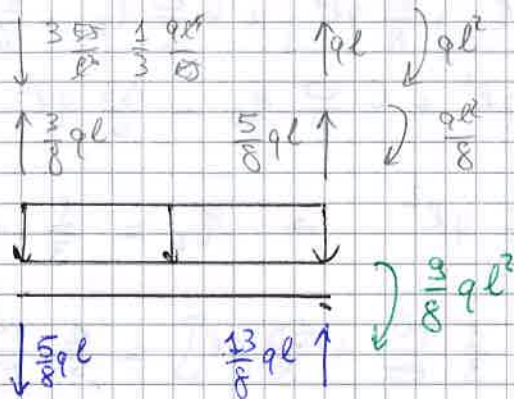 3 EJ/l³ 1/3 ql⁴/EJ ql ql²
3/8 ql 5/8 ql ql²/8
9/8 ql²
5/8 ql 13/8 ql